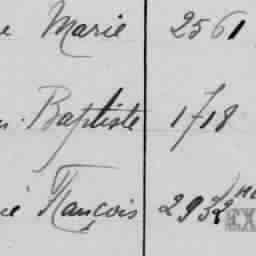 Marie 2561
Baptiste 1718
François 2932
EX